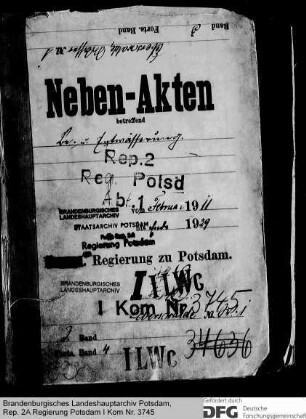 Band 3
Forts. Band
Neben-Akten
betreffend
Be- u. Entwässerung.
Rep. 2
Reg. Potsd
Abt. 1
BRANDENBURGISCHES
LANDESHAUPTARCHIV
Februar 1911
STAATSARCHIV POTSDAM
1929
Regierung Potsdam
Regierung zu Potsdam.
BRANDENBURGISCHES
LANDESHAUPTARCHIV
I I L W c
I Kom Nr. 3745
Eberswalde
Band
Band 4
I L W c
34636
Brandenburgisches Landeshauptarchiv Potsdam,
Rep. 2A Regierung Potsdam I Kom Nr. 3745
Gefördert durch
DFG Deutsche
Forschungsgemeinschaft